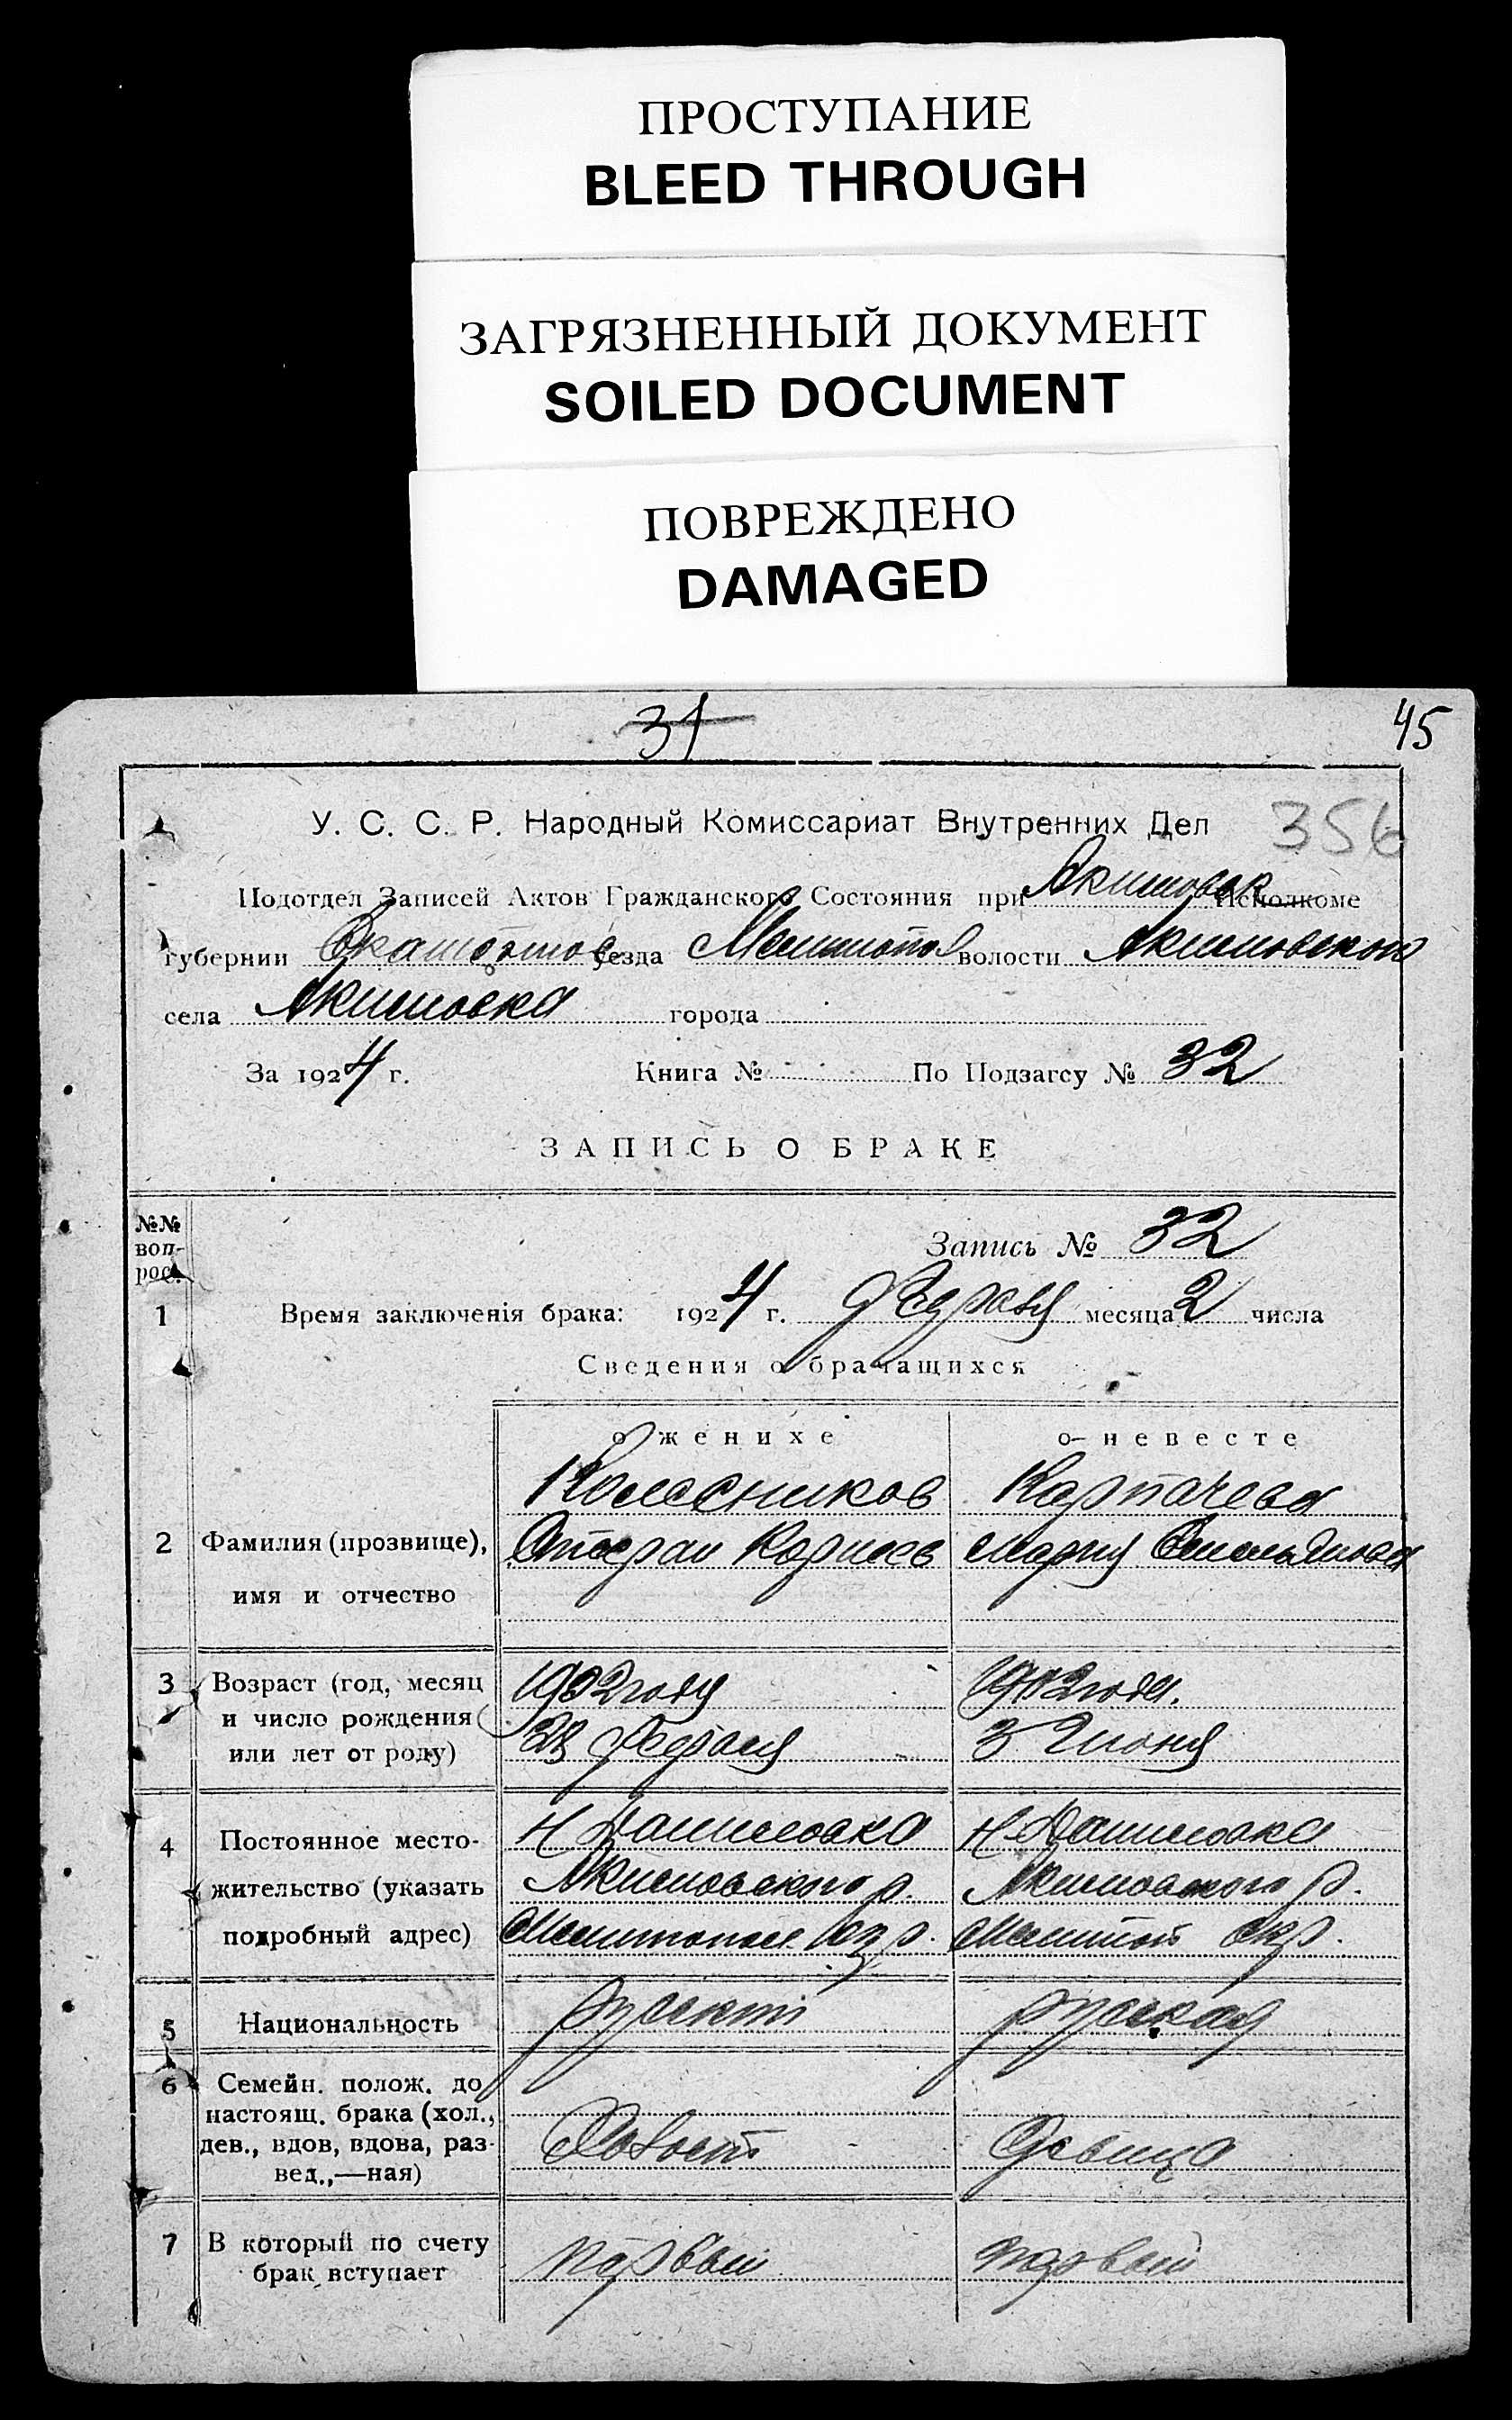 ПРОСТУПАНИЕ
BLEED THROUGH
ЗАГРЯЗНЕННЫЙ ДОКУМЕНТ
SOILED DOCUMENT
ПОВРЕЖДЕНО
DAMAGED
31
45
У. С. С. Р. Народный Комиссариат Внутренних Дел 356
Подотдел Записей Актов Гражданского Состояния при Акимовск Исполкоме
губернии уезда Мелитопол волости Акимовской
села Акимовка города
За 1924 г. Книга № По Подзагсу № 32
ЗАПИСЬ О БРАКЕ
№№ воп-рос.
Запись № 32
1 Время заключенія брака: 1924 г. месяца 2 числа
Сведения о брачащихся
о женихе о невесте
Колесников Карпачева
2 Фамилия (прозвище), Корнеев Мария Емельянова
имя и отчество
3 Возраст (год, месяц 1902 года 1902 года.
и число рождения 3 Июня
или лет от роду)
4 Постоянное место- Н Даниловка Н-Даниловка
жительство (указать Акимовского р. Акимовского р.
подробный адрес) Мелитопол. Окр. Мелитоп Окр.
5 Национальность русский русская
6 Семейн. полож. до
настоящ. брака (хол.,
дев., вдов, вдова, раз- Холост Девица
вед.,—ная)
7 В который по счету первый первый
брак вступает